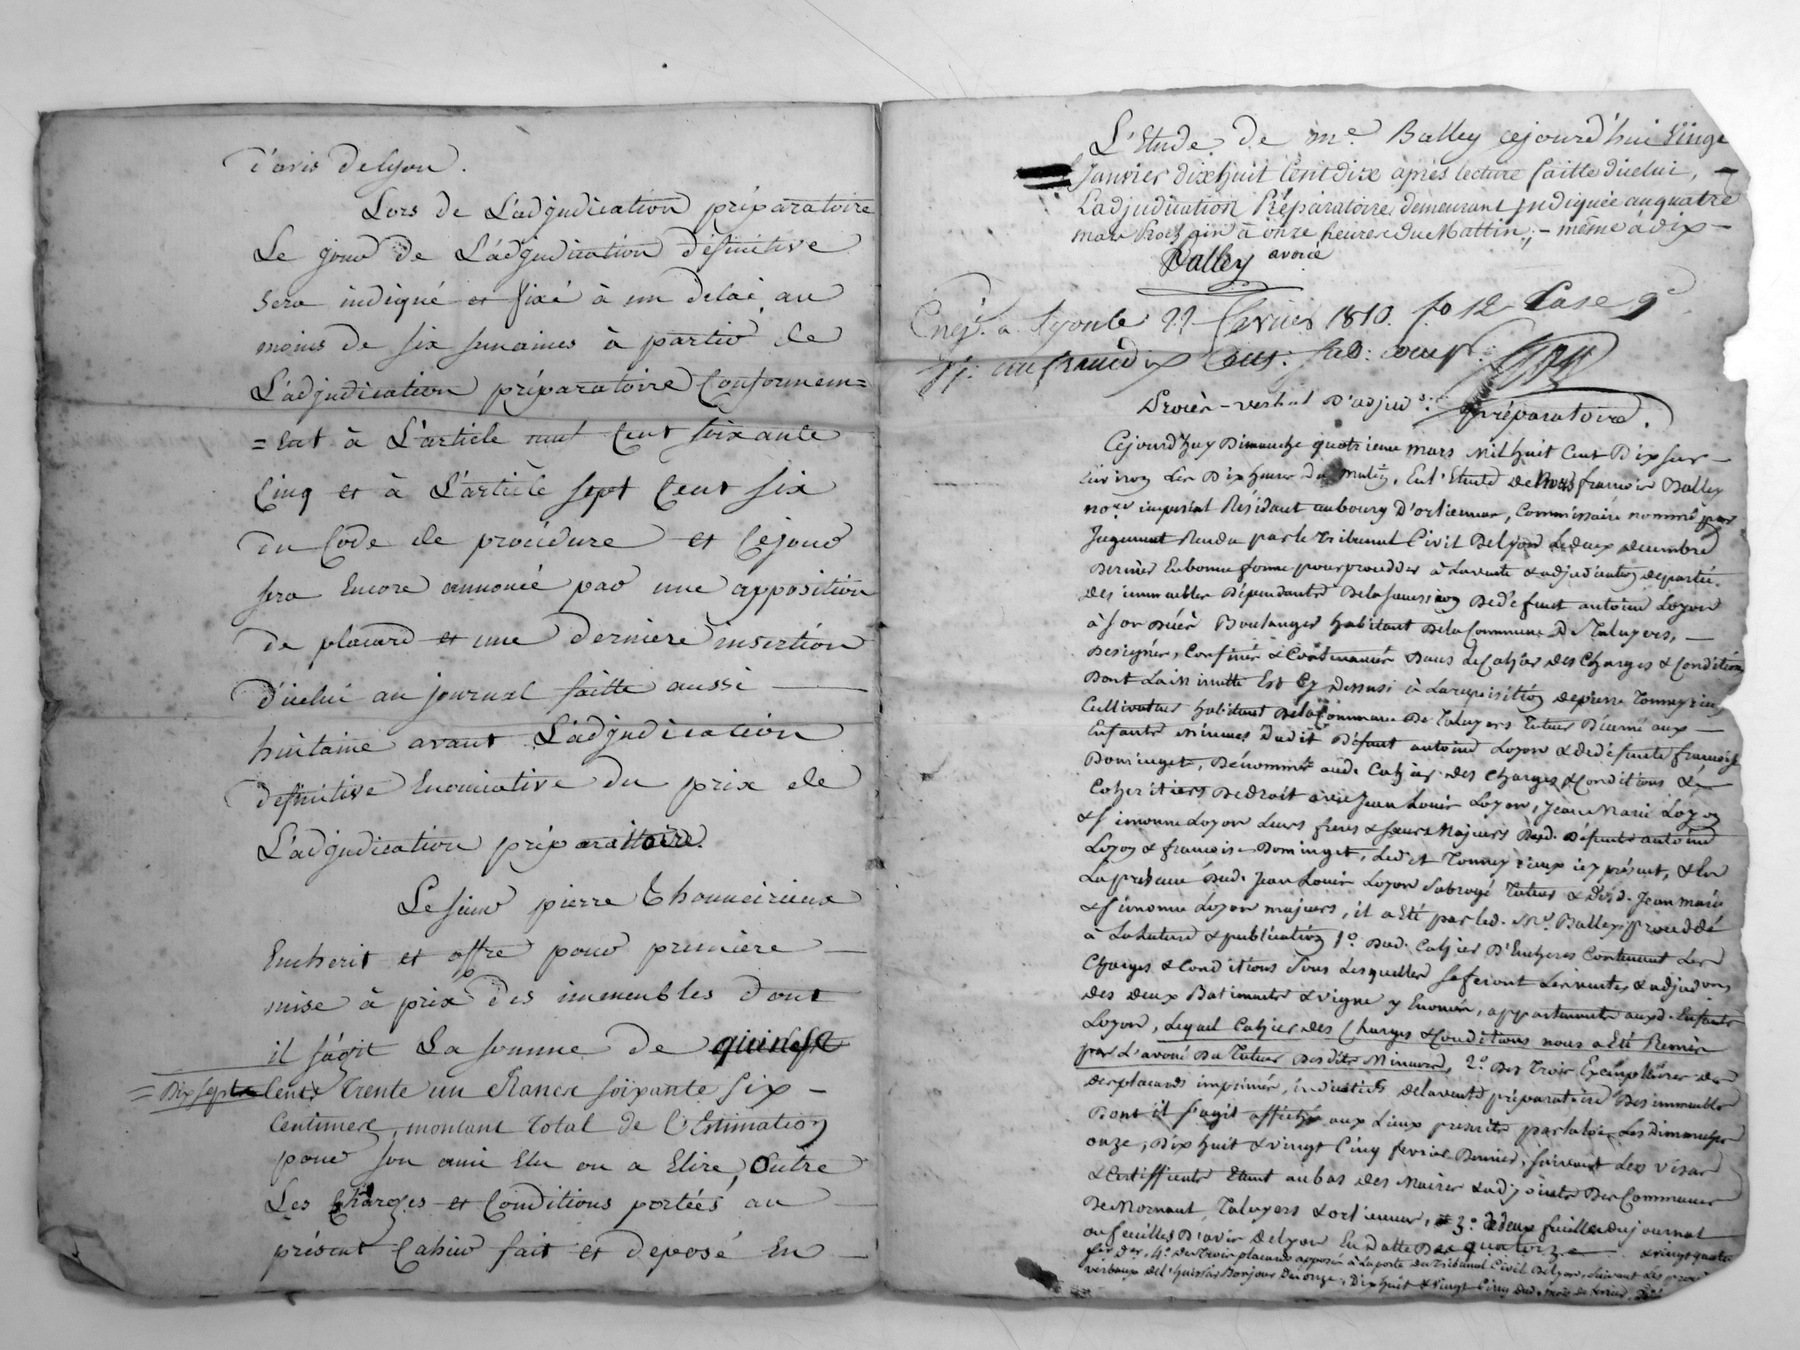 d'avis de Lyon.
Lors de L'adjudication préparatoire
Le jour de L'adjudication définitive
sera indiqué et fixé à un delai au
moins de six semaines à partir de
L'adjudication préparatoire Conformem=
=ent à L'article cent soixante
Cinq et à L'article sept Cent six
du Code de procédure et Ce jour
sera Encore annoncé par une apposition
de placard et une derniere insertion
d'icelui au journal faitte aussi
huitaine avant L'adjudication
définitive Enonciative du prix de
L'adjudication préparattoire.
Le sieur pierre Thonneirieux
Encherit et offre pour premiere
mise à prix des immeubles dont
il s'agit La somme de quinse
= Dix sept Cent Trente un francs soixante six
Centimes, montant total de L'Estimation
pour son ami Elu ou a Elire, Outre
Les Charges et Conditions portées au
présent Cahier fait et deposé En
L'Etude de me. Balley cejourd'hui Vingt
Janvier dix huit Cent dix après lecture faitte d'icelui,
L'adjudication Préparatoire demeurant indiquée au quatre
mars prochain à onze heures du Mattin, - même à dix -
Balley avoué
Enrg. a Lyon le 22 Janvier 1810. fo 12 Case 9
un franc dix Cent.
Procès-verbal d'adjud.on préparatoire.
Cejourd'huy Dimanche quatrieme mars Mil huit Cent Dix sur
Environ Les Dix heures du matin, En l'Etude de Nous françois Balley
no.re imperial Résidant au bourg d'orlienas, Commissaire nommé par
Jugement Rendu par le Tribunal Civil De Lyon Le deux decembre
Dernier En bonne forme pour proceder à La vente & adjudication de partie
des immeubles Dépendants De la succession De défunt antoine Loyon
à son décès Boulanger habitant De la Commune De Taluyers,
Designés, Confinés & Contenancés Dans Le Cahier des Charges & Conditions
Dont La Minutte Est Cy Dessus à La requisition de pierre Tonneyrieux
Cultivateur habitant De la Commune De Taluyers Tuteur Décerné aux
Enfants Mineurs Dudit Défunt antoine Loyon & de défunte françoise
Dominget, Dénommés aud. Cahier des Charges & Conditions &
Coheritiers De droit avec Jean Louis Loyon, Jean Marie Loyon
& Simonne Loyon Leurs freres & sœurs Majeurs Dud. Défunt antoine
Loyon & françoise Dominget, Ledit Tonneyrieux icy présent, & En
La présence Dud. Jean Louis Loyon Subrogé Tuteur & Desd. Jean marie
& Simonne Loyon majeurs, il a Eté par led. Me. Balley proceddé
à La Lecture & publication 1o. Dud. Cahier D'Encheres Contenant Les
Charges & Conditions Sous Lesquelles se feront Les ventes & adjud.ons
des deux Batiments & vigne y Enoncés, appartenants auxd. Enfants
Loyon, Lequel Cahier des Charges & Conditions nous a Eté Remis
par L'avoué Du Tuteur Desdits Mineurs, 2o. Des Trois Exemplaires des
des placards imprimés, indicatifs de la vente préparatoire Des immeubles
Dont il s'agit affichés aux Lieux prescrits par la loi Les Dimanches
onze, Dix huit & vingt Cinq fevrier Dernier, suivant Les visas
& Certifficats Etant au bas des Maires & adjoints Des Communes
De Mornant, Taluyers & orlienas, 3o. de deux feuilles du journal
ou feuilles d'avis de Lyon En Datte Des quatorze & vingt quatre
fer. der, 4o. Des Trois placards apposés à La porte Du Tribunal Civil De Lyon, Suivant Les procès
verbaux de l'huissier Bonjour Des onze, Dix huit & vingt Cinq dud. mois de fevrier,